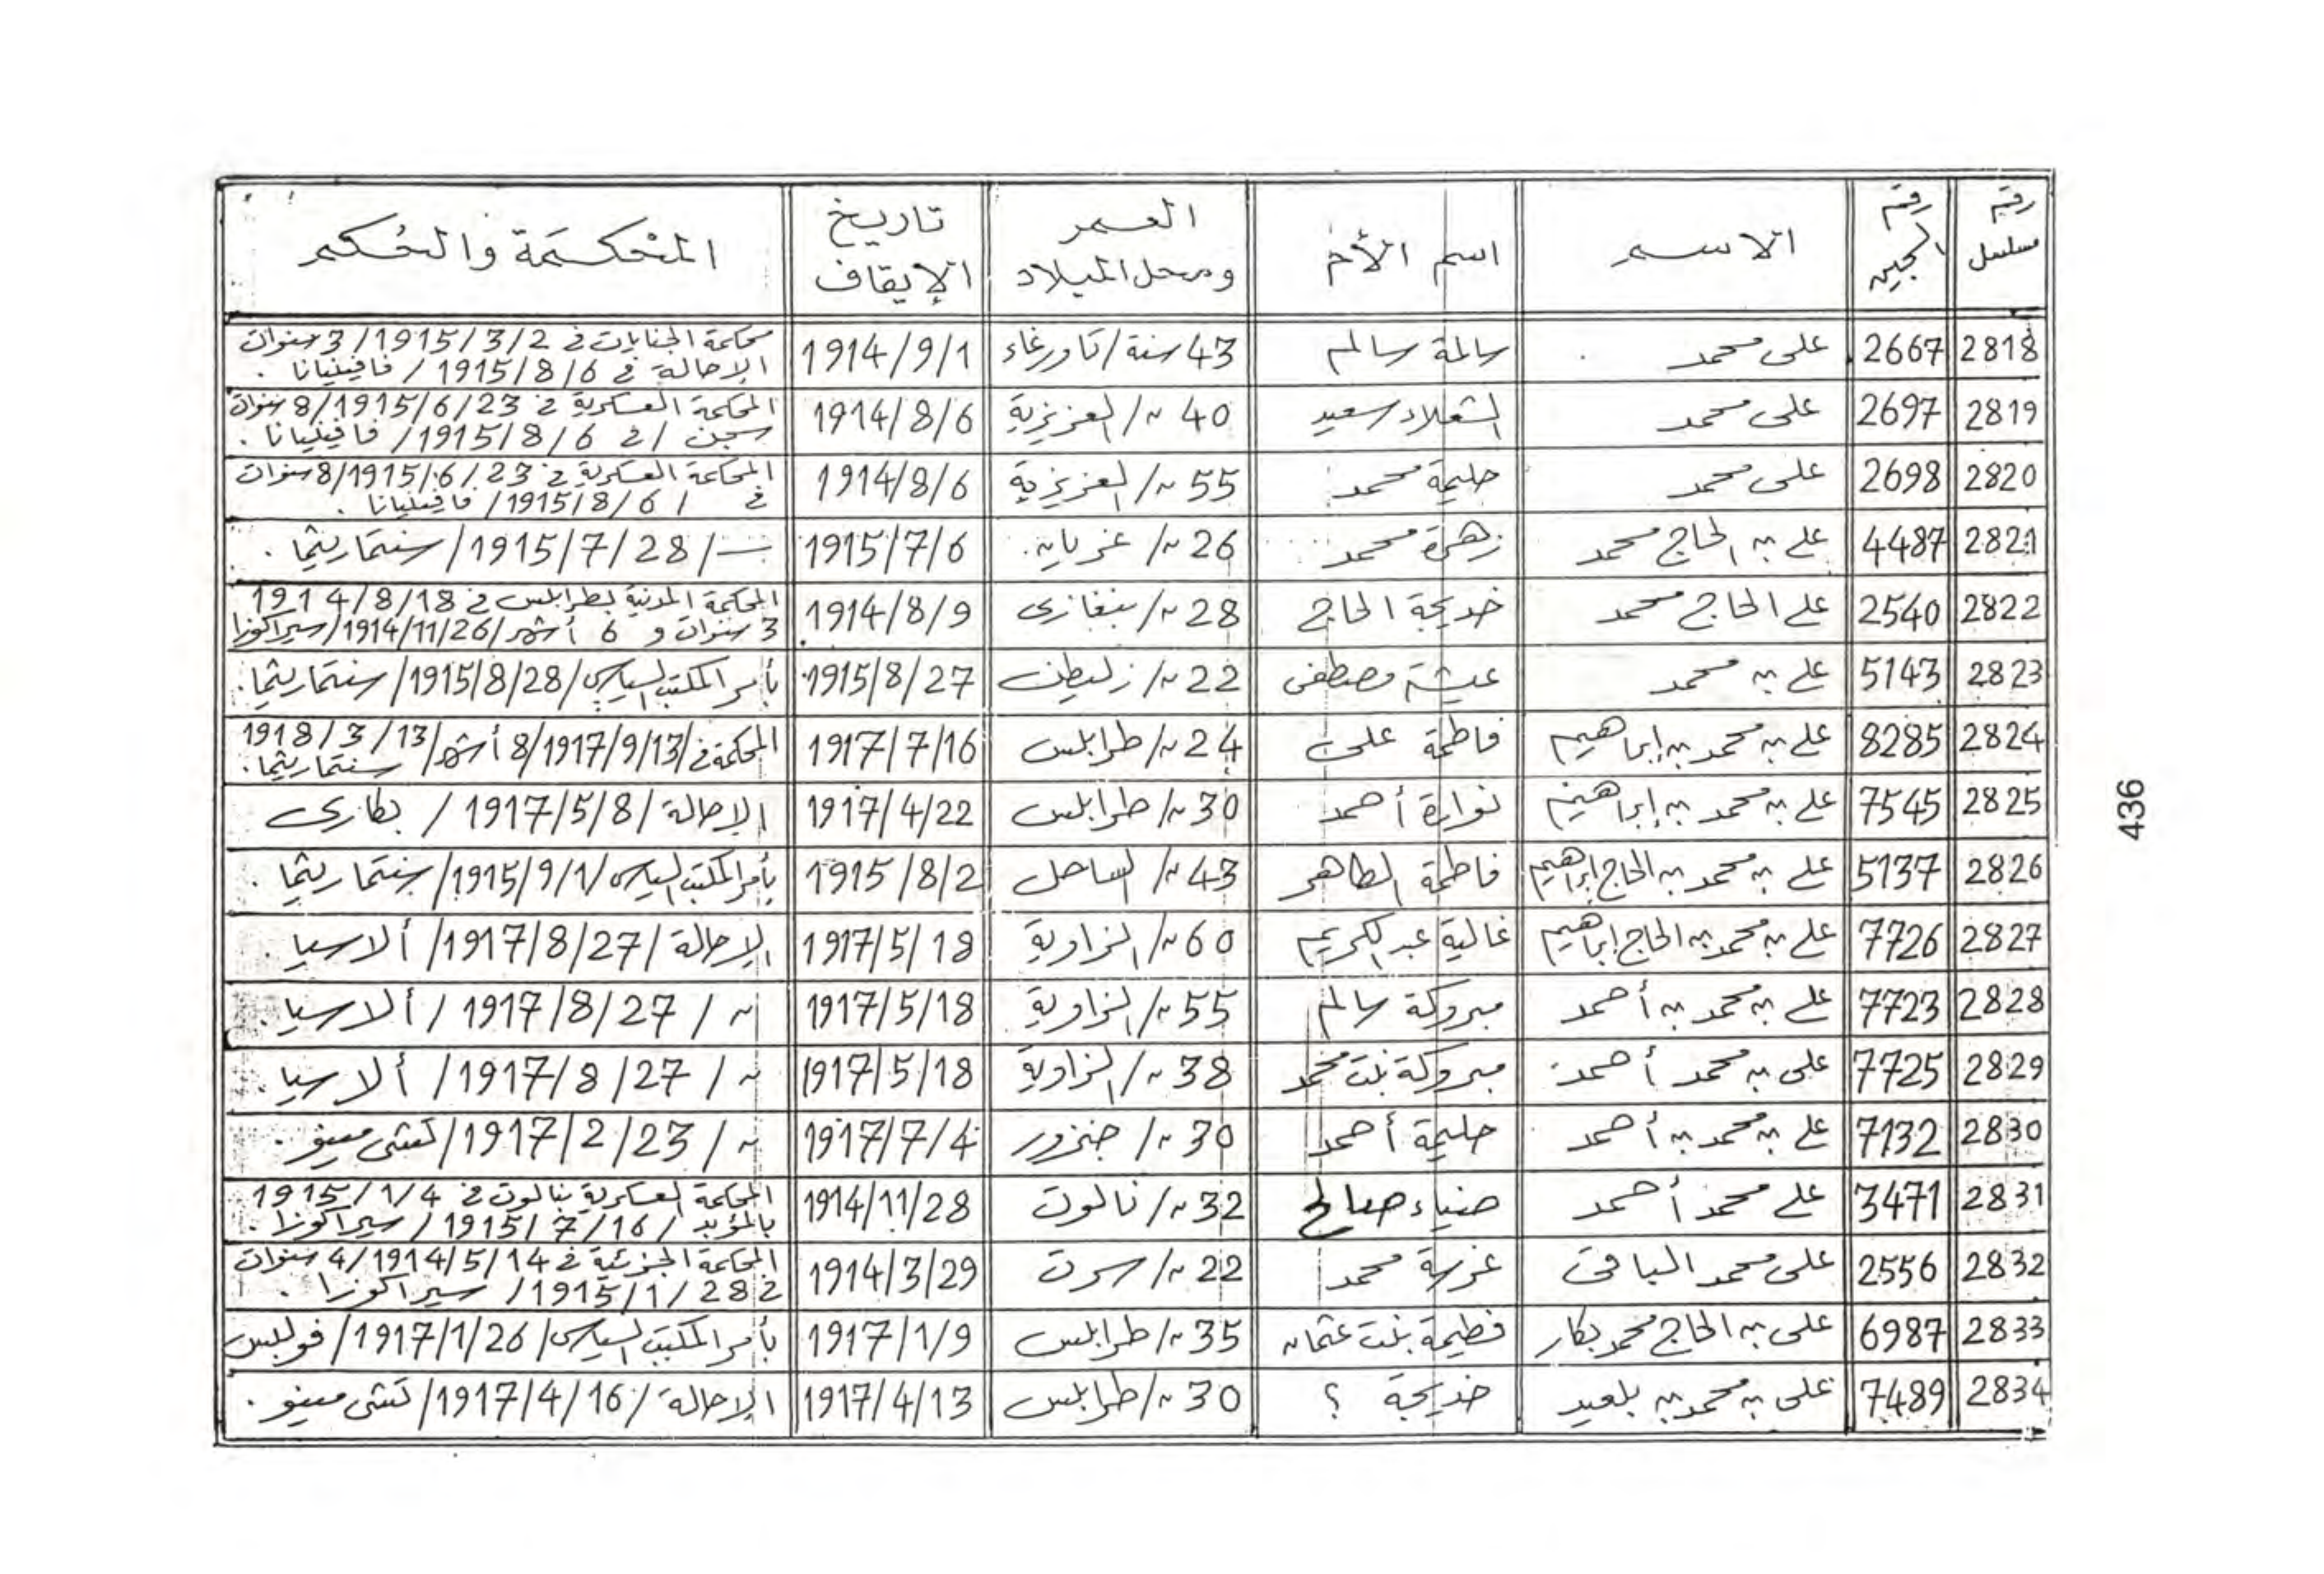 رقم مسلسل | رقم السجين | الاسم | اسم الأم | العمر ومحل الميلاد | تاريخ الإيقاف | المحكمة والحكم
2818 | 2667 | على محمد | سالمة سالم | 43 سنة/تاورغاء | 1914/9/1 | محكمة الجنايات في 1915/3/2/ 3 سنوات الإحالة في 1915/8/6 / فافينيانا .
2819 | 2697 | على محمد | سعيد | 40 ″/العزيزية | 1914/8/6 | المحكمة العسكرية في 1915/6/23/ 8 سنوات سجن / في 1915/8/6/ فافينيانا .
2820 | 2698 | على محمد | حليمة محمد | 55 ″/العزيزية | 1914/8/6 | المحكمة العسكرية في 1915/6/23/ 8 سنوات في / 1915/8/6/ فافينيانا .
2821 | 4487 | علي بن الحاج محمد | زهرة محمد | 26 ″/ غريان. | 1915/7/6 | ــ/ 1915/7/28/ سنتماريتما .
2822 | 2540 | علي الحاج محمد | خديجة الحاج | 28 ″/ بنغازى | 1914/8/9 | المحكمة المدنية بطرابلس في 1914/8/18 3 سنوات و 6 أشهر/1914/11/26/سيراكوزا
2823 | 5143 | علي بن محمد | عيشة مصطفى | 22 ″/ زليطن | 1915/8/27 | بأمر المكتب السياسي/1915/8/28/ سنتماريتما.
2824 | 8285 | علي بن محمد بن إبراهيم | فاطمة على | 24 ″/ طرابلس | 1917/7/16 | المحكمة في/1917/9/13/ 8 أشهر/1918/3/13 سنتماريتما.
2825 | 7545 | علي بن محمد بن إبراهيم | نوارة أحمد | 30 ″/ طرابلس | 1917/4/22 | الإحالة /1917/5/8 / بطارى
2826 | 5137 | علي بن محمد بن الحاج إبراهيم | فاطمة الطاهر | 43 ″/ الساحل | 1915/8/2 | بأمر المكتب السياسى/1915/9/1/ سنتماريتما .
2827 | 7726 | علي بن محمد بن الحاج إبراهيم | غالية عبد الكريم | 60 ″/ الزاوية | 1917/5/18 | الإحالة /1917/8/27/ ألاسيا .
2828 | 7723 | علي بن محمد بن أحمد | مبروكة سالم | 55 ″/الزاوية | 1917/5/18 | ″ / 1917/8/27 / ألاسيا .
2829 | 7725 | على بن محمد أحمد | مبروكة بنت محمد | 38 ″/الزاوية | 1917/5/18 | ″ / 1917/8/27/ ألاسيا .
2830 | 7132 | علي بن محمد بن أحمد | حليمة أحمد | 30 ″/ جنزور | 1917/7/4 | ″ / 1917/2/23/ تشى مينو .
2831 | 3471 | علي محمد أحمد | ضياء صالح | 32 ″/ نالوت | 1914/11/28 | المحكمة العسكرية بنالوت في 1915/1/4 بالمؤبد / 1915/7/16 / سيراكوزا .
2832 | 2556 | على محمد الباقى | عزيزة محمد | 22 ″/ سرت | 1914/3/29 | المحكمة الجزئية في 1914/5/14/ 4 سنوات في 1915/1/28/ سيراكوزا .
2833 | 6987 | على بن الحاج محمد بكار | فطيمة بنت عثمان | 35 ″/ طرابلس | 1917/1/9 | بأمر المكتب السياسى/1917/1/26/ فوللبس
2834 | 7489 | على بن محمد بن بلعيد | خديجة ؟ | 30 ″/ طرابلس | 1917/4/13 | الإحالة /1917/4/16/ تشى مينو .
436